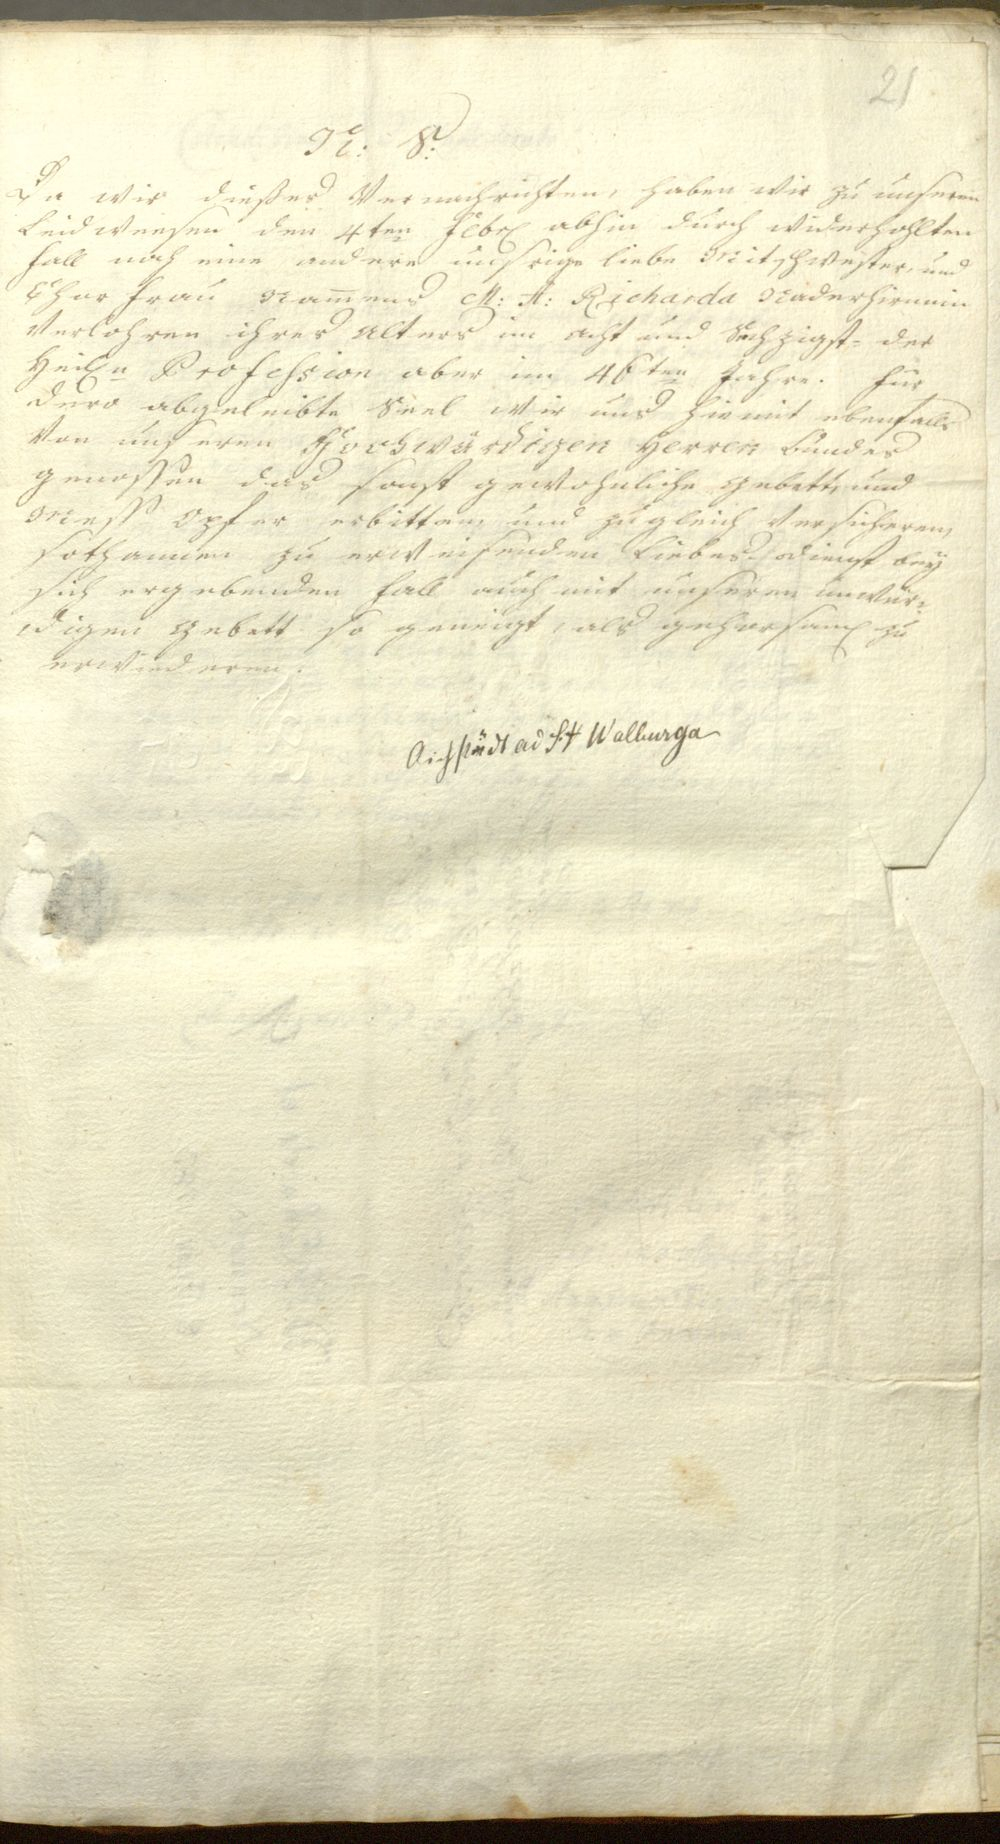 21
N: S:
Da wir dießes Vernachrichten, haben wir zu unserem
Leidweesen den 4ten Febr abhin durch widerhohlten
fall noch eine andere unsrige liebe Mitschwester, und
Chor frau Namens M: A: Richarda Naderhirnin
Verlohren ihres Alters im acht und Sechzigst= der
Heiln Profession aber im 46ten Jahre. Für
dero abgeleibte Seel wir uns hiemit ebenfalls
Von unseren Hochwürdigen Herren bundes
genossen das sonst gewohnliche gebett, und
Mess Opfer erbitten, und zugleich Versicheren,
sothannen zu erweisenden Liebes dienst bey
sich ergebenden fall auch mit unseren unwür=
digen gebett so geneigt, als gehorsam zu
erwiederen.
Aichstädt ad St Walburga